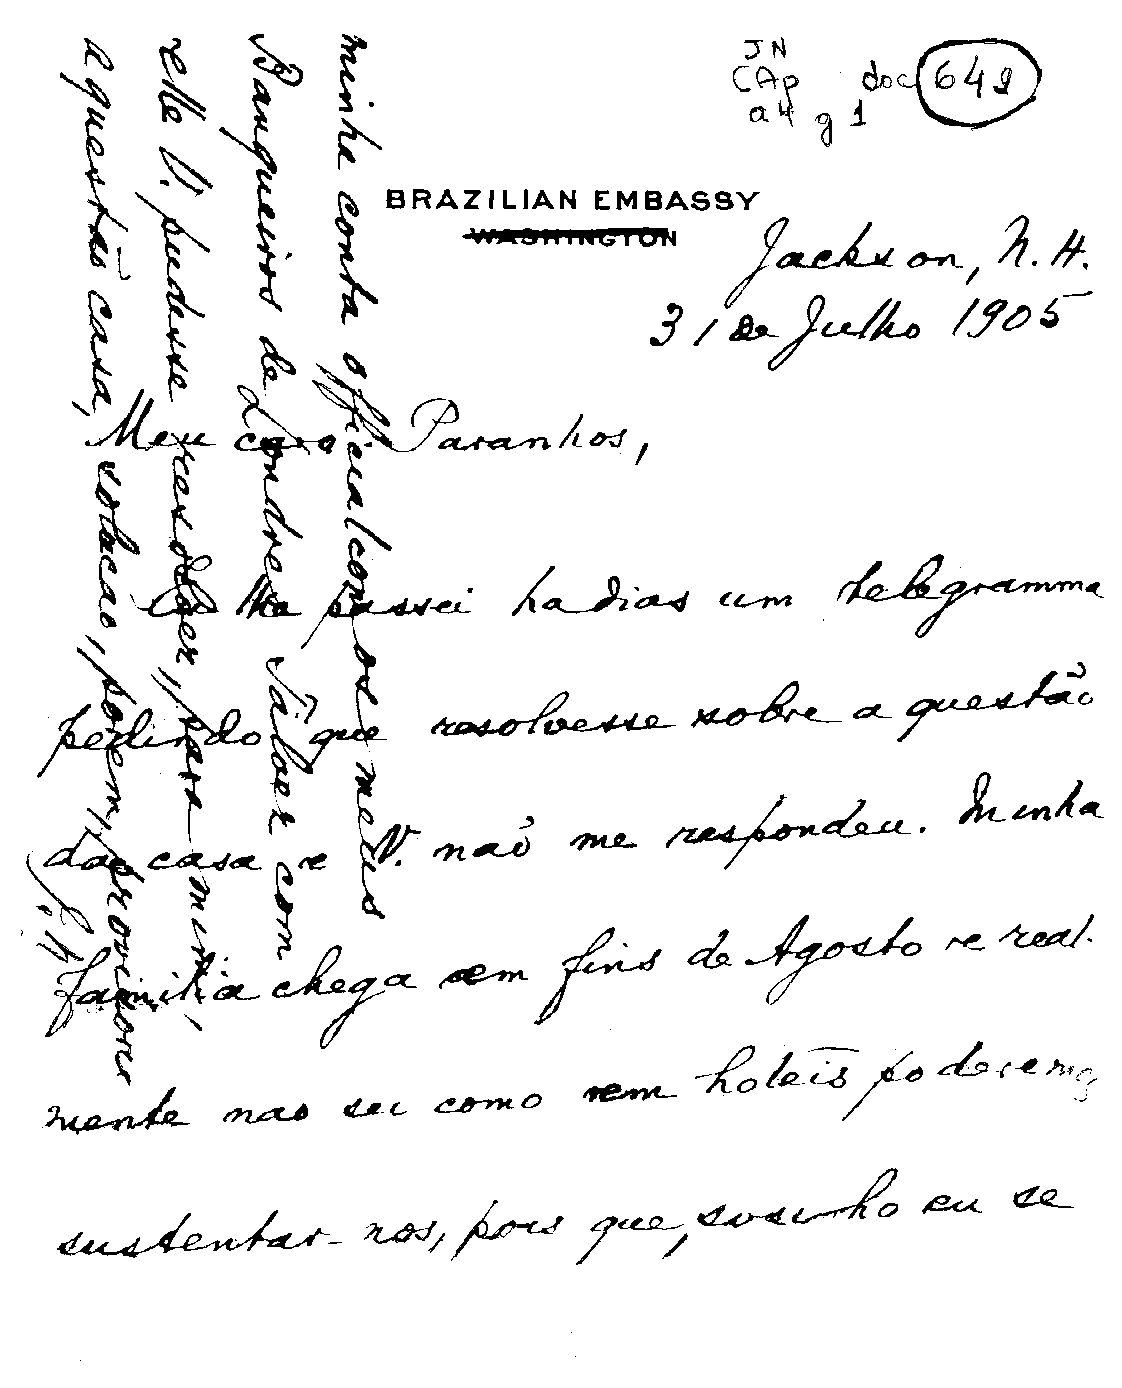 JN
CAp doc 642
a4 g 1
BRAZILIAN EMBASSY
WASHINGTON
Jackson, N. H.
31 de Julho 1905
Meu caro Paranhos,
Eu lhe passei ha dias um telegramma
pedindo que resolvesse sobre a questão
da casa e V. não me respondeu. Minha
familia chega em fins de Agosto e real-
mente nao sei como em hoteis poderemos
sustentar-nos, pois que, sosinho eu se
minha conta official com os meus
Banqueiros de Londres. Talvez com
elle V. pudesse resolver, para mim,
a questão casa, solução, porem, provisoria